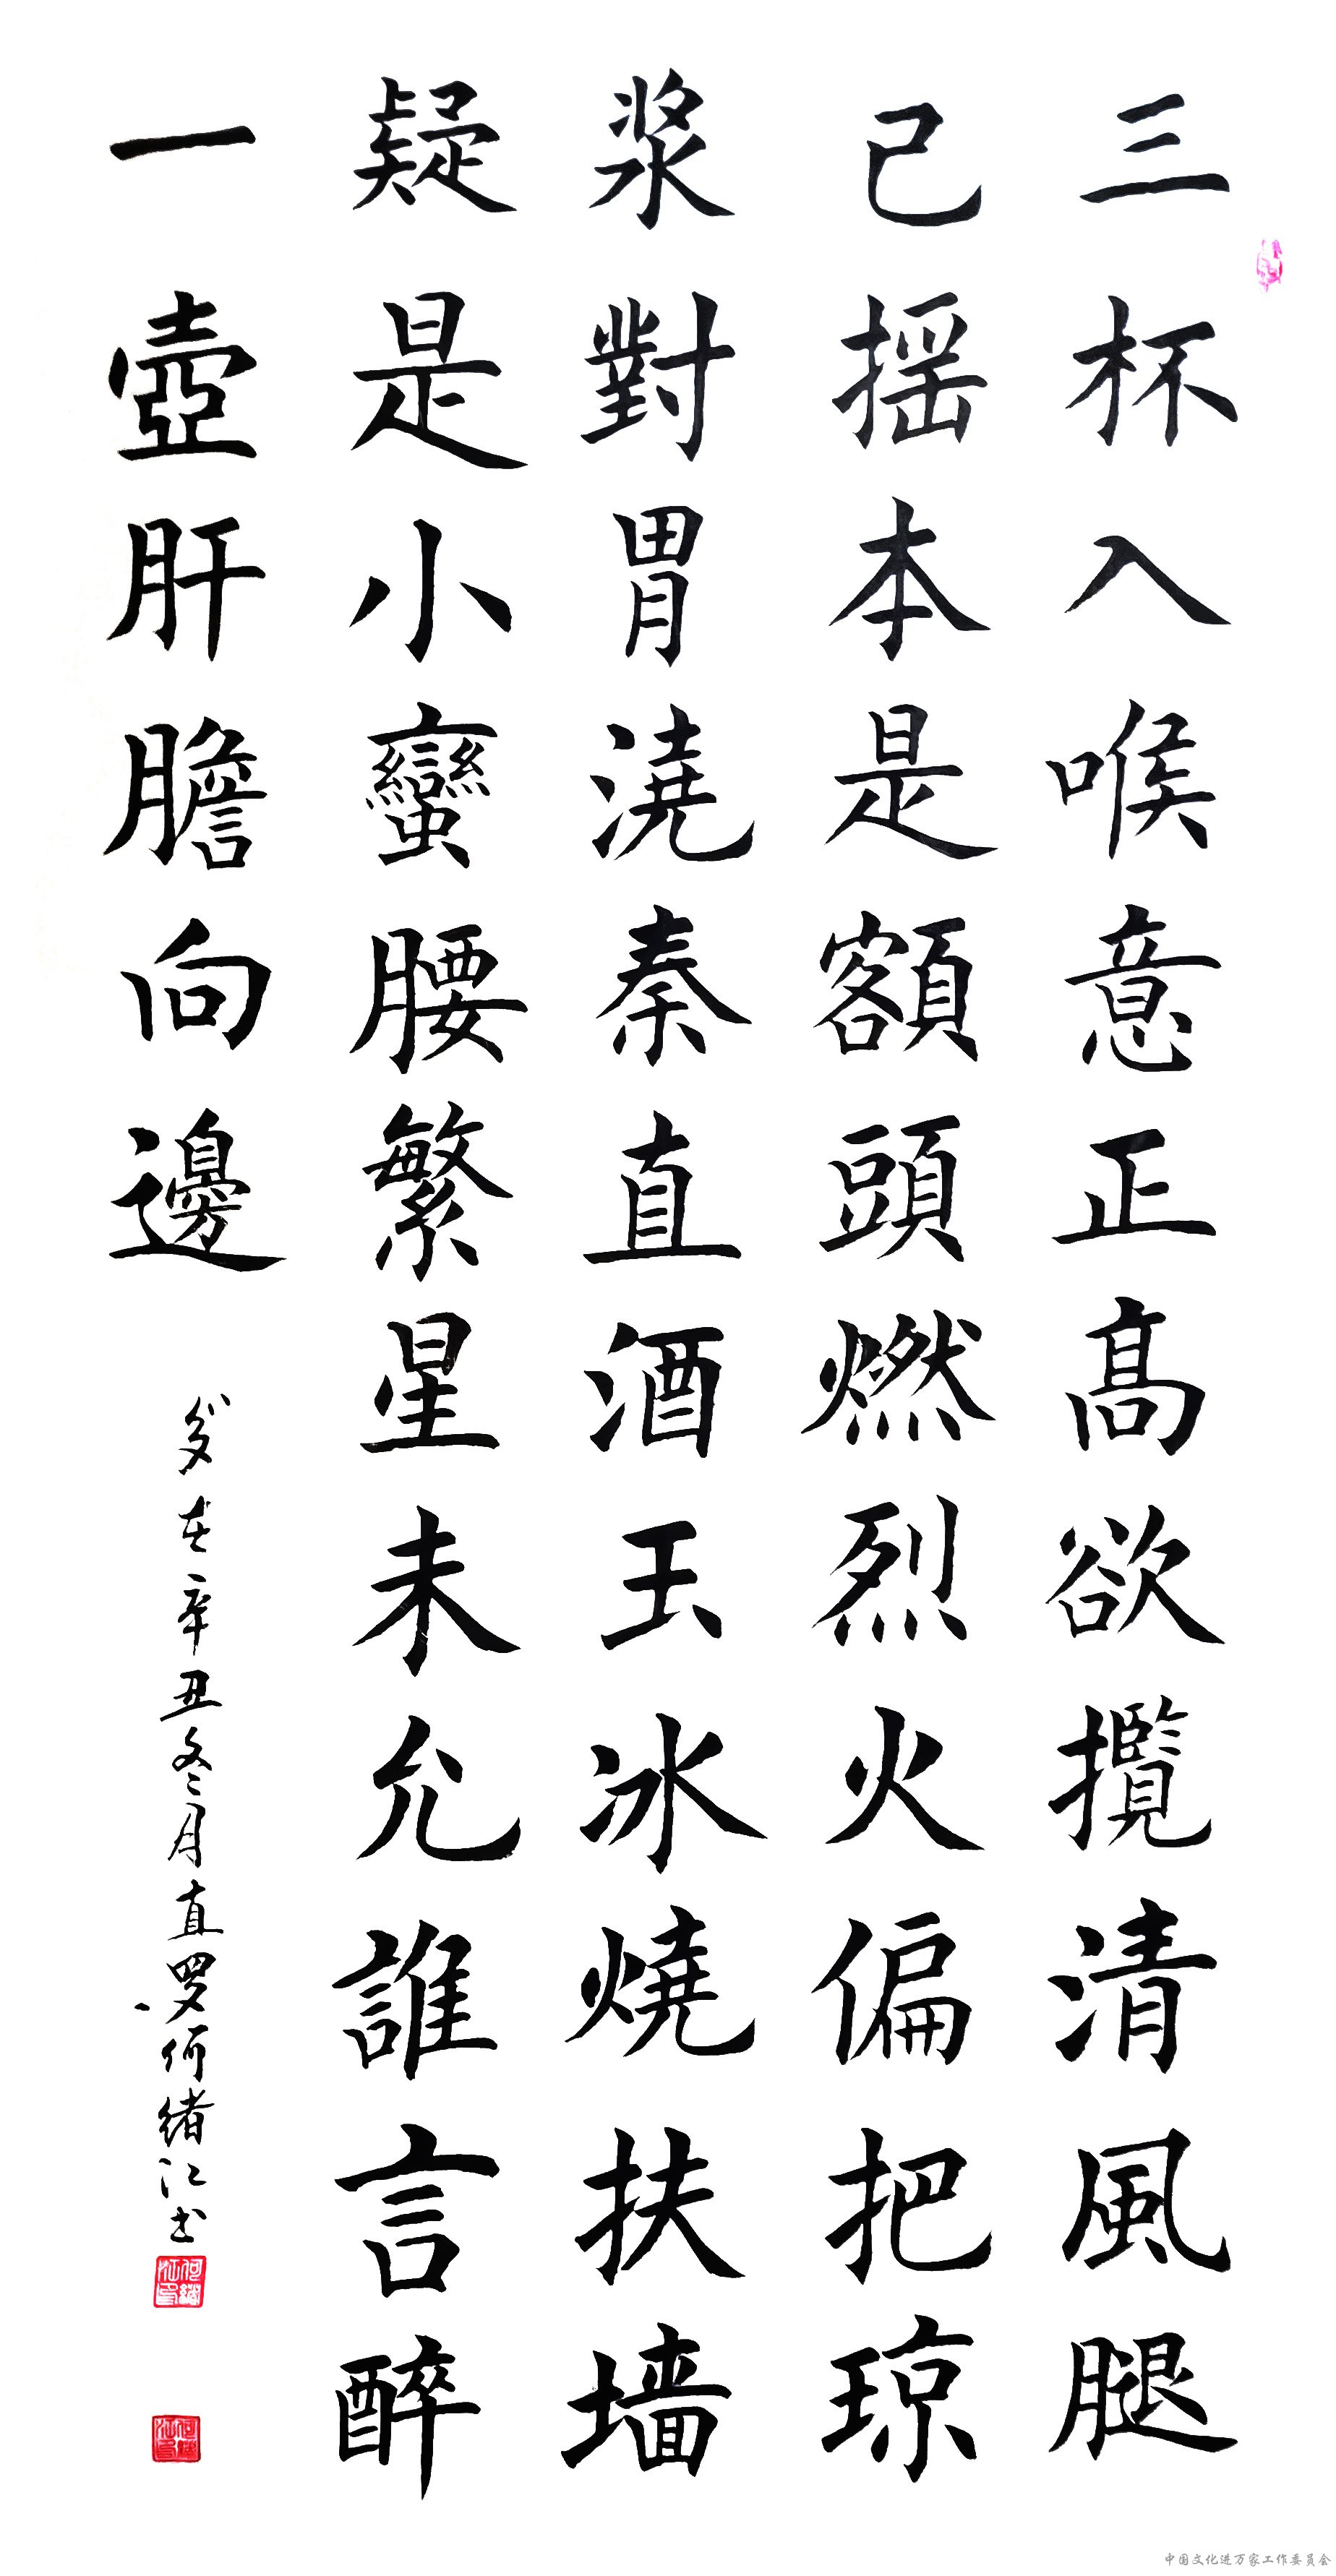 三杯入喉意正高欲攬清風腿
已摇本是額頭燃烈火偏把琼
浆對胃澆秦直酒玉冰燒扶墙
疑是小蠻腰繁星未允誰言醉
一壺肝膽向邊
岁在辛丑冬月直罗何绪江书
中国文化进万家工作委员会